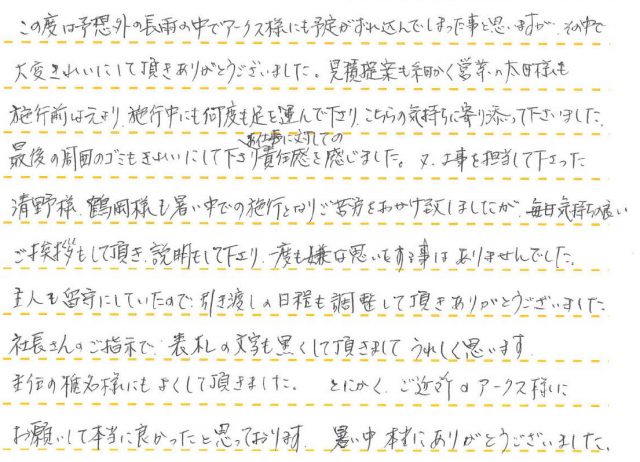 この度は予想外の長雨の中でアークス様にも予定がずれ込んでしまった事と思いますが、その中で
大変きれいにして頂きありがとうございました。見積提案も細かく営業の太田様も
施行前は元より、施行中にも何度も足を運んで下さり、こちらの気持ちに寄り添って下さいました。
お仕事に対しての
最後の周囲のゴミもきれいにして下さり責任感を感じました。又、工事を担当して下さった
清野様、鶴岡様も暑い中での施行となりご苦労をおかけ致しましたが、毎日気持ちの良い
ご挨拶もして頂き、説明もして下さり、一度も嫌な思いをする事はありませんでした。
主人も留守にしていたので、引き渡しの日程も調整して頂きありがとうございました。
社長さんのご指示で、表札の文字も黒くして頂きましてうれしく思います。
主任の椎名様にもよくして頂きました。 とにかく、ご近所のアークス様に
お願いして本当に良かったと思っております。 暑い中本当にありがとうございました。